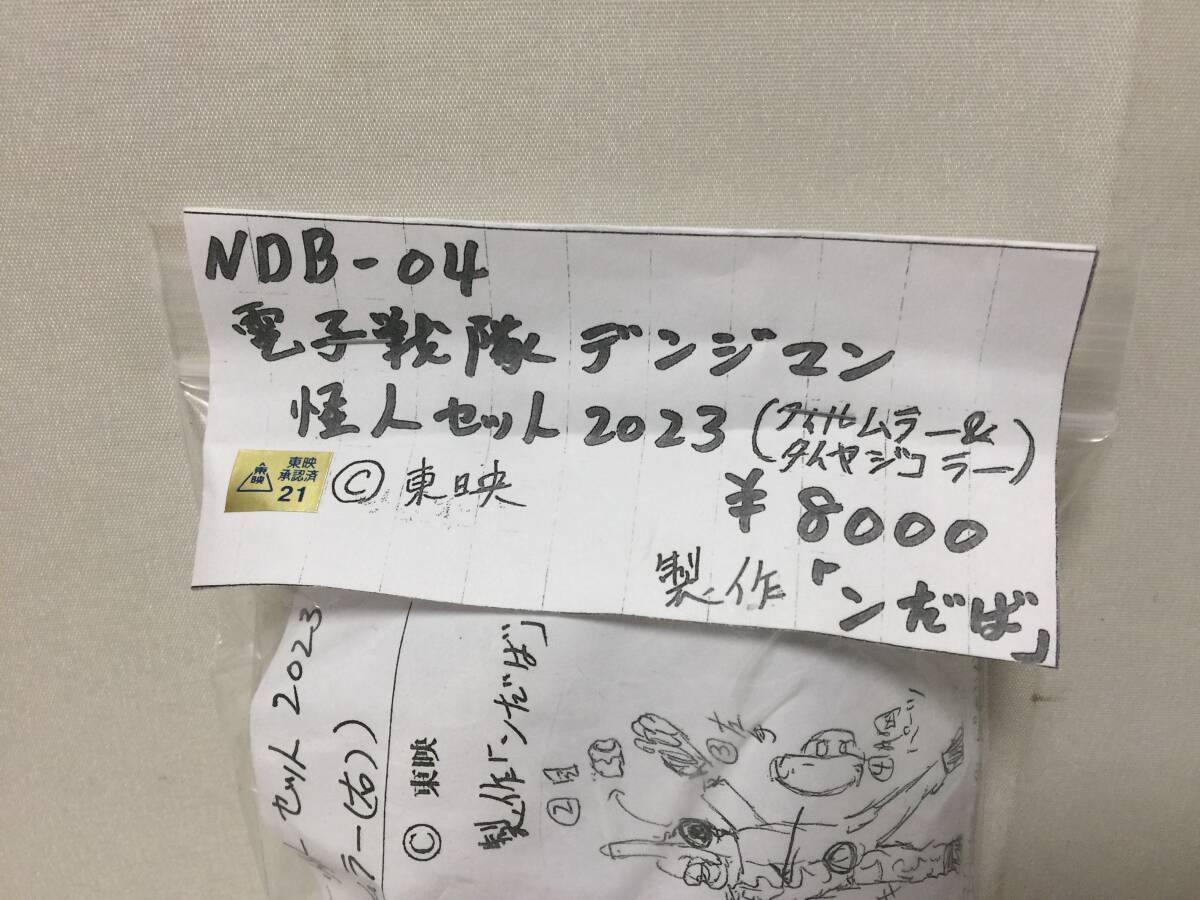 NDB-04
電子戦隊デンジマン
怪人セット2023(フィルムラー&
ダイヤジゴラー)
東映
東映
承認済
21
©東映
¥8000
製作「ンだば」
セット2023
ラー(右))
© 東映
製作「ンだば」
②
③左
④
パーツ